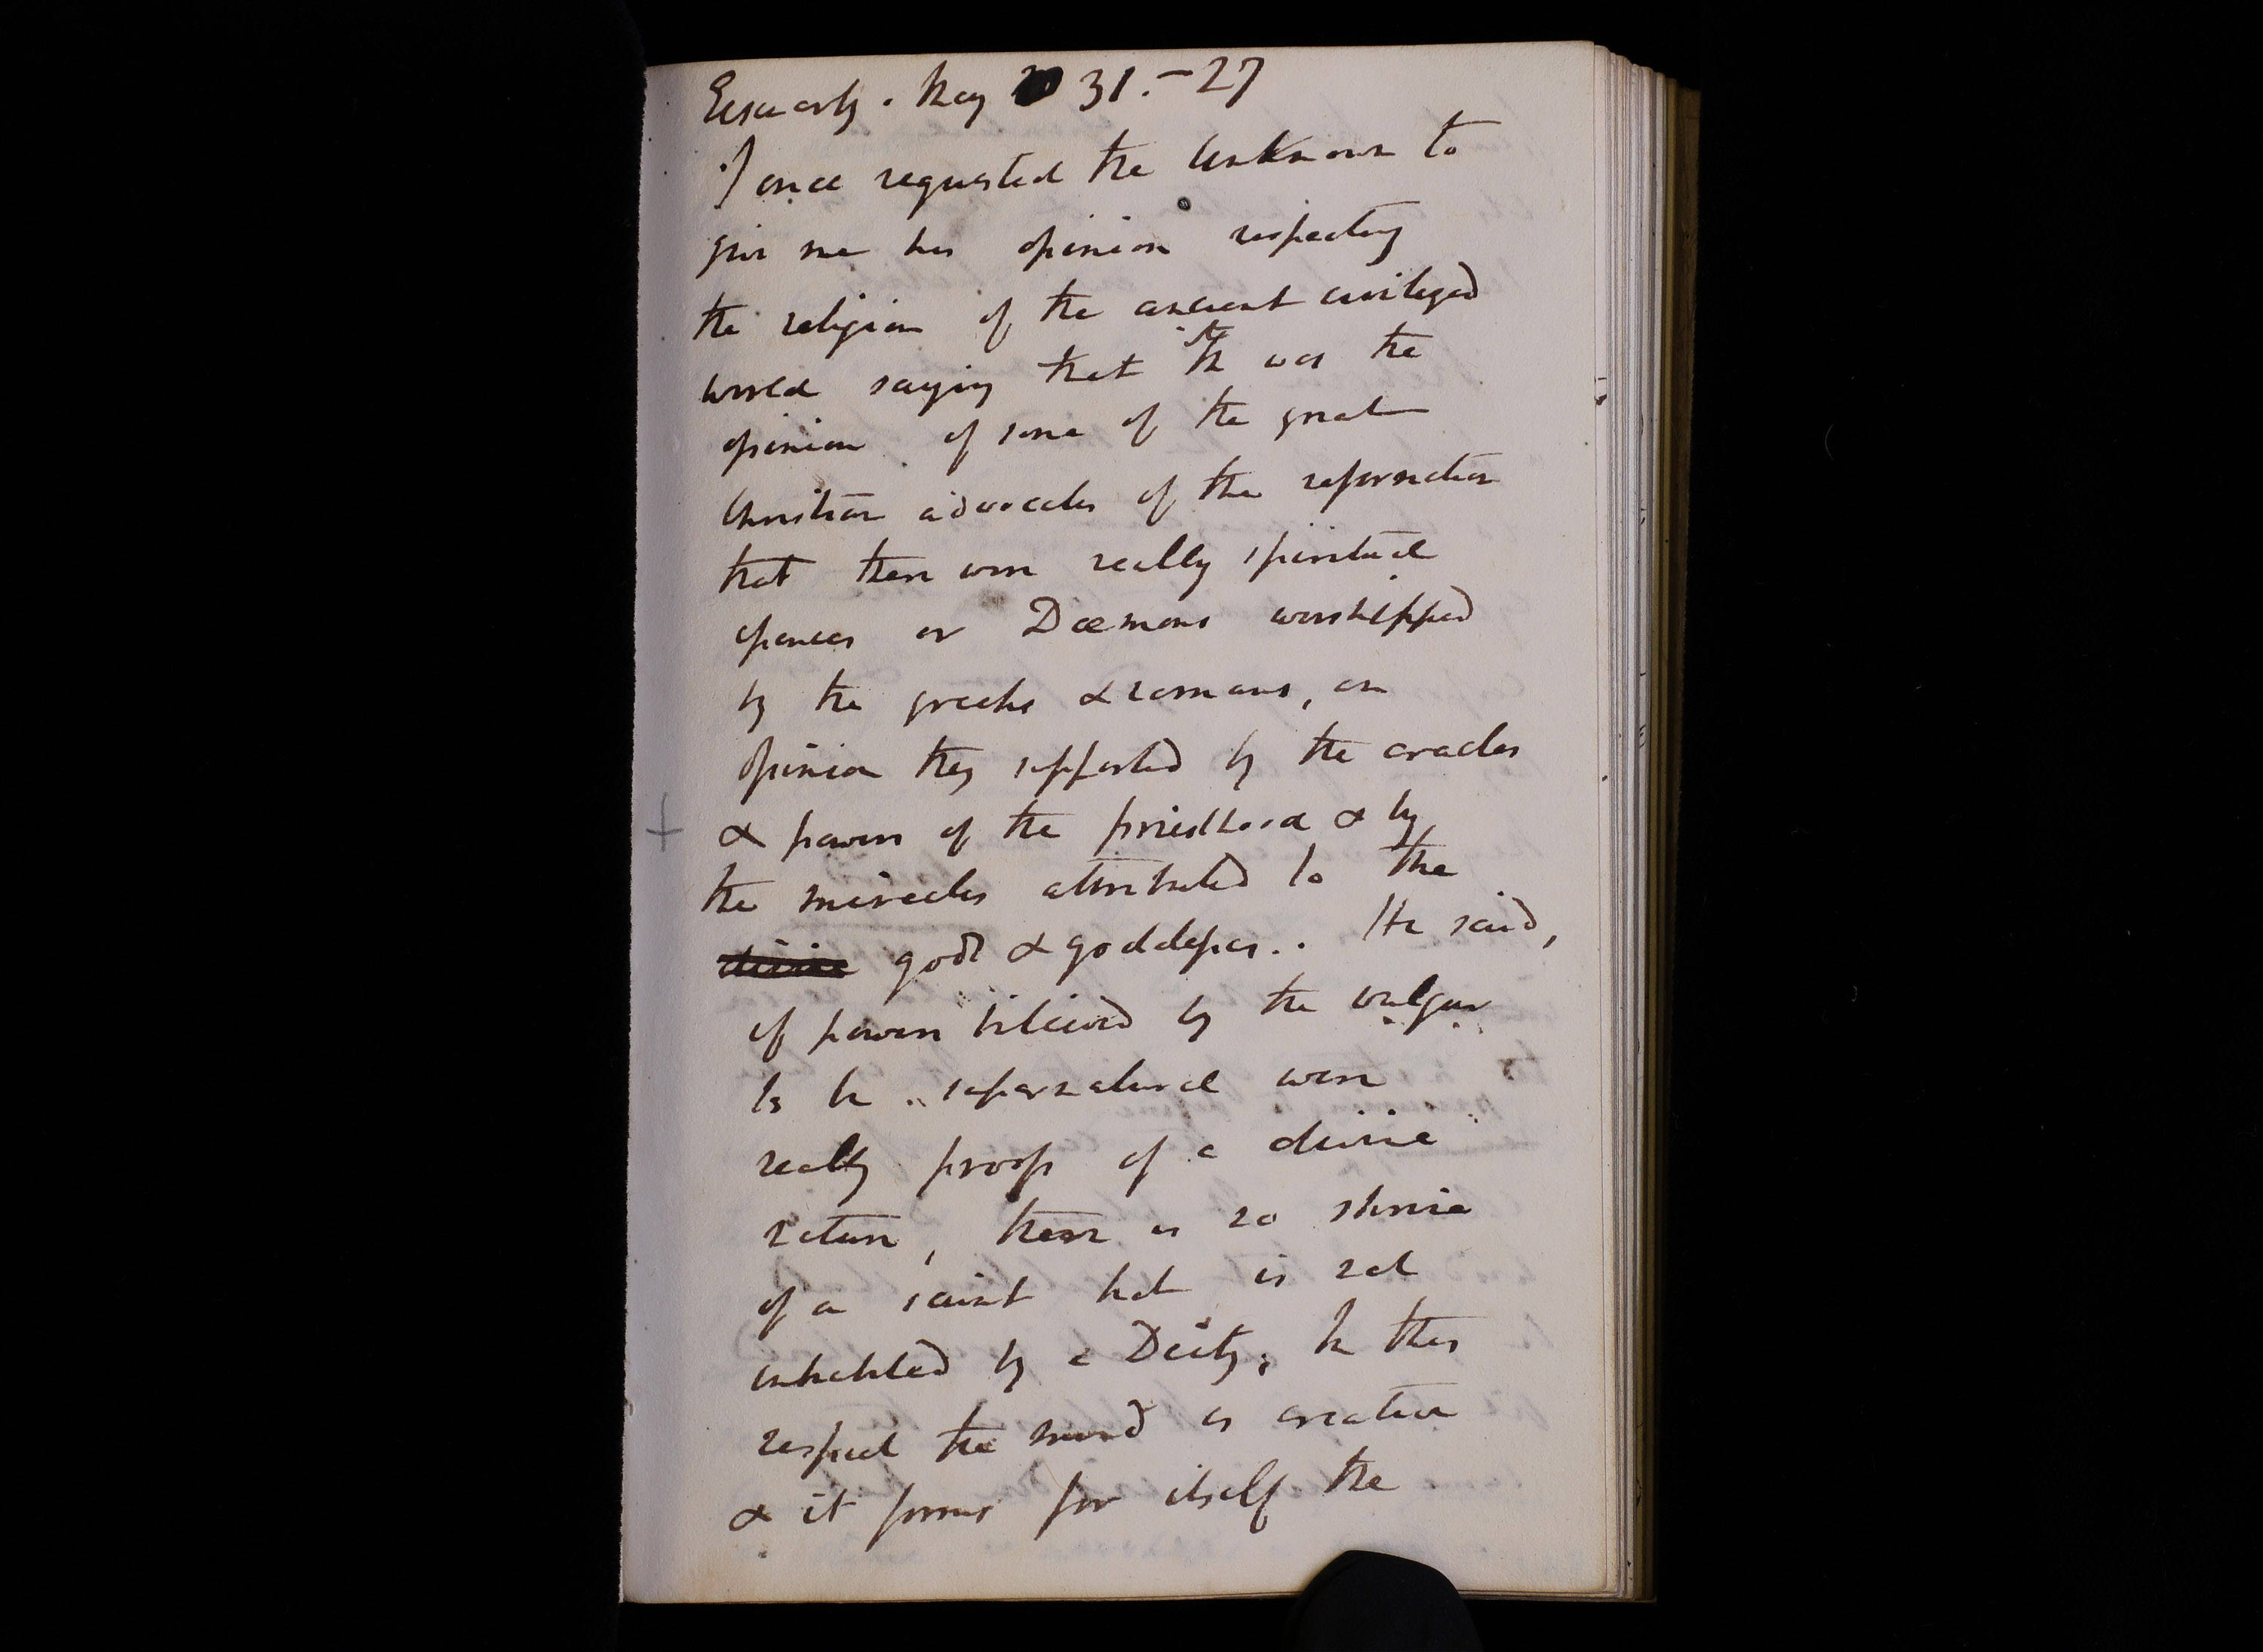 May 31. – 27
I once requested the Unknown to
give me his opinion respecting
the religion of the ancient civilized
world saying that it was the
opinion of some of the great
Christian advocates of the reformation
that there were really spiritual
essences or Dæmons worshipped
by the greeks & romans, an
opinion they supported by the oracles
& powers of the priesthood & by
the miracles attributed to the
divine gods & goddesses.. He said,
if powers believed by the vulgar
to be supernatural were
really proofs of a divine
nature, there is no shrine
of a saint that is not
inhabited by a Deity; In this
respect the mind is creative
& it forms for itself the